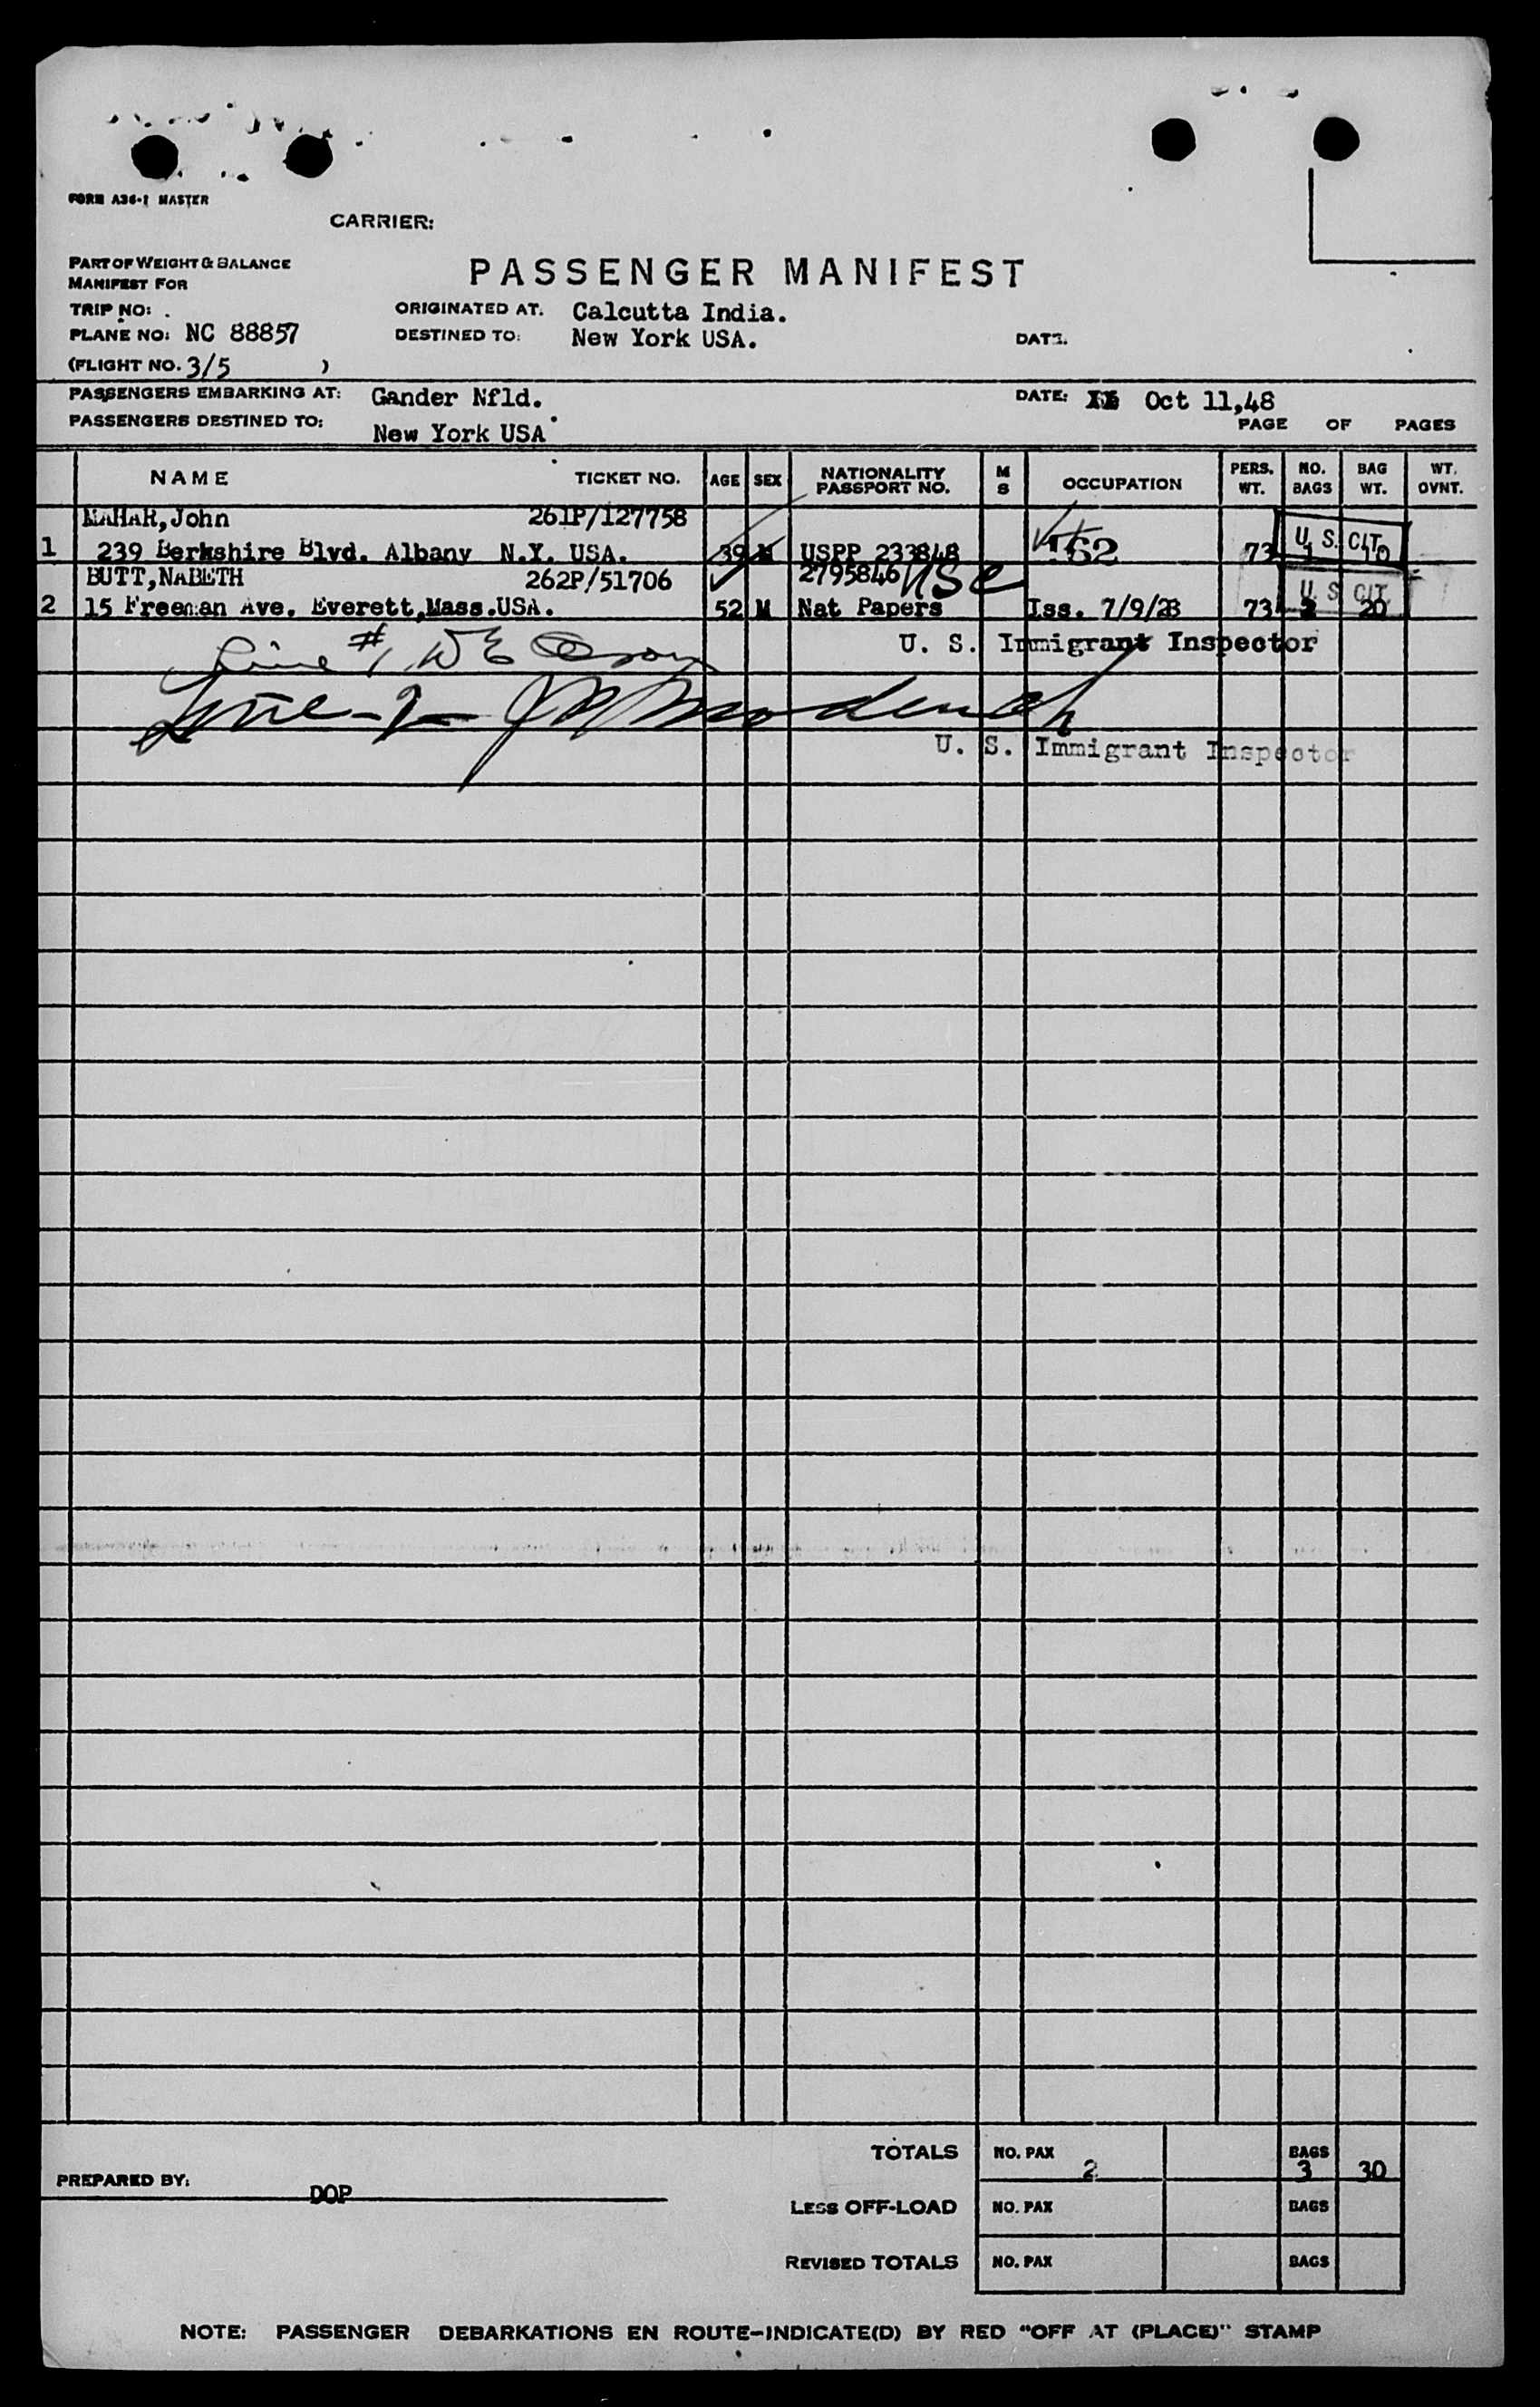 FORM A36-1 MASTER
CARRIER:
PART OF WEIGHT & BALANCE
MANIFEST FOR
PASSENGER MANIFEST
TRIP NO: .
ORIGINATED AT. Calcutta India.
PLANE NO: NC 88857
DESTINED TO: New York USA.
DATE.
(FLIGHT NO. 3/5 )
PASSENGERS EMBARKING AT: Gander Nfld.
DATE: Oct 11,48
PASSENGERS DESTINED TO: New York USA
PAGE OF PAGES
NAME TICKET NO. AGE SEX NATIONALITY PASSPORT NO. M S OCCUPATION PERS. WT. NO. BAGS BAG WT. WT. OVNT.
MAHAR, John 261P/127758
1 239 Berkshire Blvd. Albany N.Y. USA. 39 M USPP 233848 162 73 1 U. S. CIT. 10
BUTT, NABETH 262P/51706 2795846 nsc
2 15 Freeman Ave. Everett,Mass.USA. 52 M Nat Papers Iss. 7/9/28 73 2 U. S. CIT. 20
Line #1 WE
U. S. Immigrant Inspector
Line - 2 -
U. S. Immigrant Inspector
TOTALS NO. PAX 2 BAGS 3 30
PREPARED BY: DOP
LESS OFF-LOAD NO. PAX BAGS
REVISED TOTALS NO. PAX BAGS
NOTE: PASSENGER DEBARKATIONS EN ROUTE-INDICATE(D) BY RED "OFF AT (PLACE)" STAMP